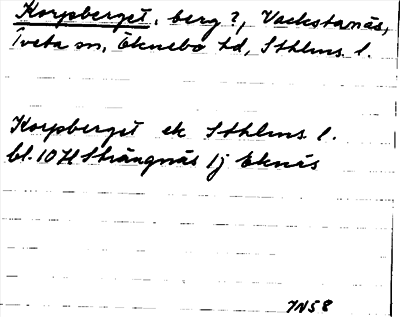 Korpberget, berg?, Vackstanäs,
Tveta sn, Öknebo hd, Sthlms l.
Korpberget ek Sthlms l.
bl. 10H Strängnäs 1j Eknäs
IN58